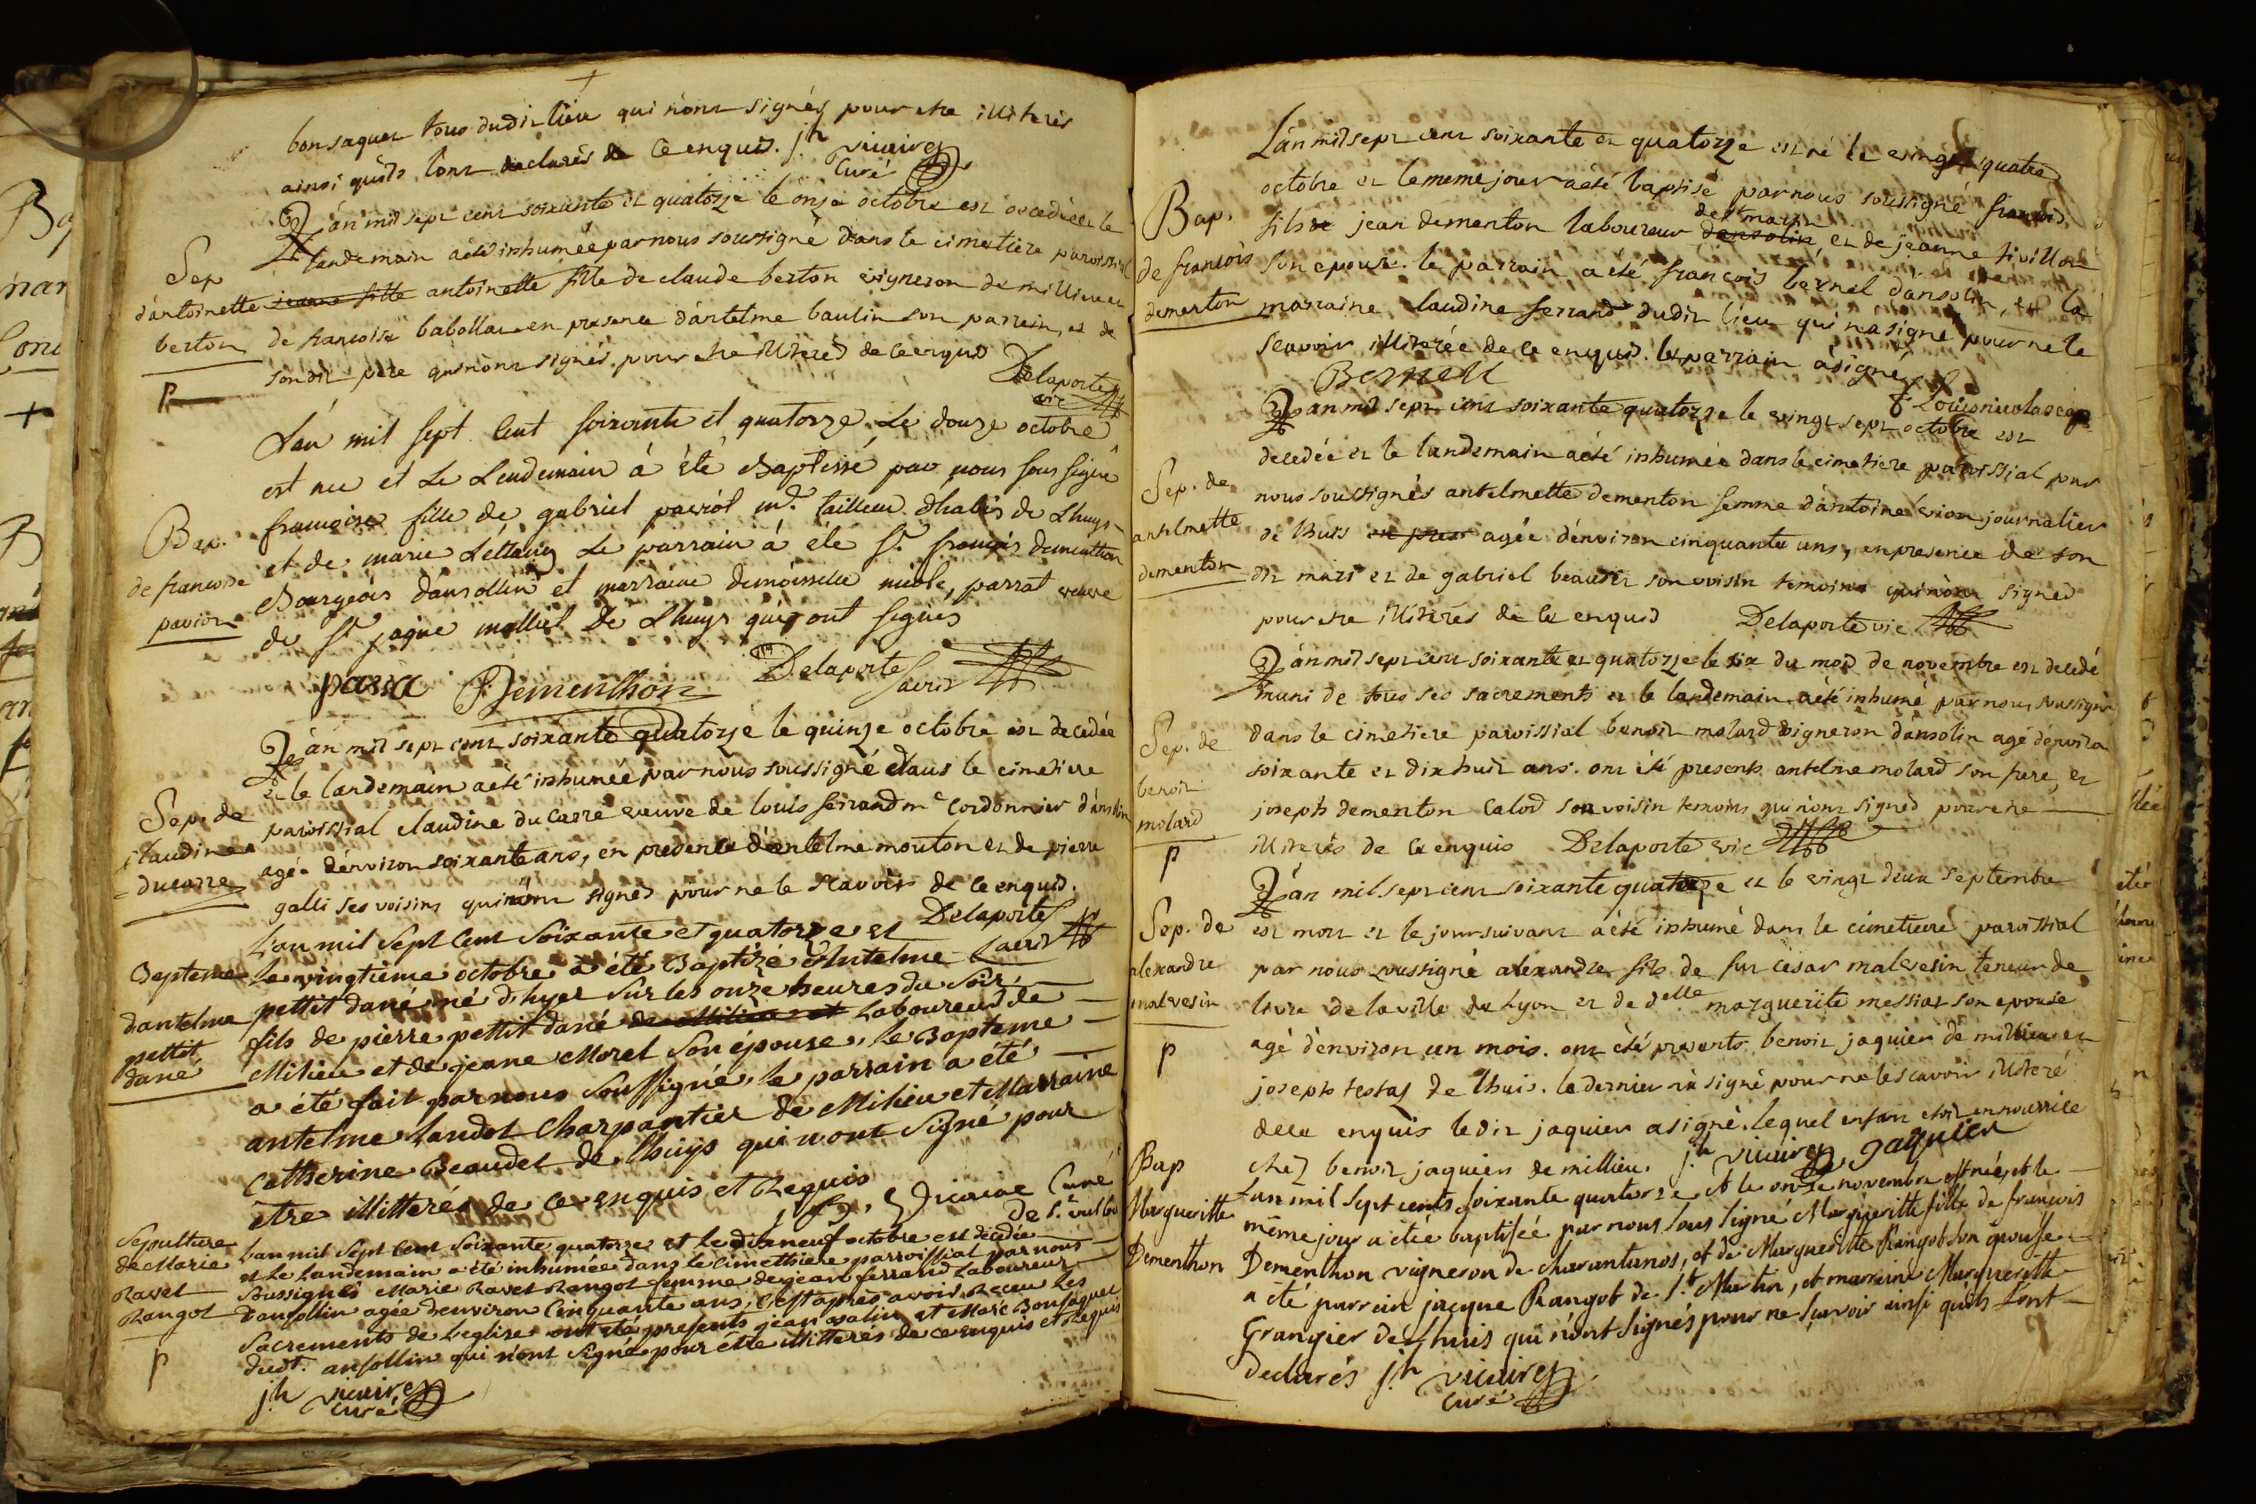 bonsaquet tous dudit lieu qui n'ont signés pour etre illiterés
ainsi quils l'ont declarés de ce enquis. jh vicaire
curé
L'an mil sept cent soixante et quatorze le onze octobre est decedée et le
landemain a été inhumée par nous soussigné dans le cimetiere paroissial
Sep
d'antoinette
berton
p
jeanne fille antoinette fille de claude berton vigneron de millieu et
de francoise babollat en presence d'antelme baulin son parrein, et de
son dit pere qui n'ont signés pour etre illiterés de ce enquis
Delaporte
vic
L'an mil sept cent soixante et quatorze le douze octobre
est née et le lendemain à été Baptissé par nous sous signé
Bap.
de francoise
paviot
francoise fille de gabriel paviot md. tailleur d'habis de Lhuys
et de marie Lettang le parrain à été Sr. françois demanthon
Bourgeois d'ansollin et marraine demoiselle nicole parrat veuve
de Sr jaque molliet De Lhuys qui ont signés
parra Dementhon Delaporte vic
L'an mil sept cent soixante quatorze le quinze octobre est decedée
et le landemain a été inhumée par nous soussigné dans le cimetiere
Sep. de
claudine
ducarre
paroissial claudine du carre veuve de louis ferrand me cordonnier d'ansolin
agée d'environ soixante ans, en presence d'antelme mouton et de pierre
galli ses voisins qui n'ont signés pour ne le scavoir de ce enquis.
Delaporte
vic
L'an mil sept cent soixante et quatorze et
Bapteme
dantelme
pettit
dané
le vingtieme octobre a été Baptizé Antelme
pettit dané né d'hyer sur les onze heures du soir
fils de pierre pettit dané de Milieu et Laboureur de
Milieu et de jeane Morel son épouse, le Bapteme
a été fait par nous soussigné, le parrain a été
antelme Landot Charpantier de Milieu et Marraine
Catherine Beaudet de Lhuys qui n'ont signé pour
être illitterés de ce enquis et Requis
Vicaire Curé
de St.
Sepulture
de Marie
Ravet
Rangot
p
L'an mil sept cent soixante quatorze et le dixneuf octobre est décédée
et le landemain a été inhumée dans le cimethiere parroissial par nous
Soussignés Marie Ravet Rangot femme de jean ferrand Laboureur
D'ansollin agée d'environ Cinquante ans, Cest après avoir Receu les
Sacrements de L'eglise ont été presents jean valin et Marc Bonsaquet
dudt. ansollin qui n'ont signé pour être illitterés de ce enquis et Requis
jh vicaire
curé
L'an mil sept cent soixante et quatorze est né le vingt quatre
octobre et le meme jour a été baptisé par nous soussigné francois
Bap.
de francois
dementon
fils de jean dementon laboureur d'ansolin de st martin et de jeanne tivillon
son epouse. le parrain a été francois bernel d'ansolin, et la
marraine claudine ferrand dudit lieu qui n'a signé pour ne le
scavoir illiterée de ce enquis. le parrain a signé
Bernell
L'an mil sept cent soixante quatorze le vingt sept octobre est
decedée et le landemain a été inhumée dans le cimetiere paroissial par
Sep. de
antelmette
dementon
nous soussignés antelmette dementon femme d'antoine vion journalier
de lhuis et pour agée d'environ cinquante ans, en presence de son
dit mari et de gabriel beaudet son voisin temoins qui n'ont signés
pour etre illiterés de ce enquis Delaporte vic
L'an mil sept cent soixante et quatorze le six du mois de novembre est decedé
muni de tous ses sacrements et le landemain a été inhumé par nous soussigné
Sep. de
benoit
molard
p
dans le cimetiere paroissial benoit molard vigneron d'ansolin agé d'environ
soixante et dixhuit ans. ont été presents antelme molard son frere, et
joseph dementon calod son voisin temoins qui n'ont signés pour etre
illiterés de ce enquis Delaporte vic
L'an mil sept cent soixante quatorze et le vingt deux septembre
Sep. de
alexandre
malvesin
p
est mort et le jour suivant a été inhumé dans le cimetiere paroissial
par nous soussigné alexandre fils de sur cesar malvesin teneur de
livre de la ville de Lyon et de delle marguerite messiat son epouse
agé d'environ un mois. ont été presents benoit jaquier de millieu et
joseph testas de lhuis. le dernier n'a signé pour ne le scavoir illiteré
dece enquis ledit jaquier a signé. lequel enfant etoit en nourrice
chez benoit jaquier de millieu. jh vicaire jaquier
Bap
Margueritte
Dementhon
L'an mil sept cents soixante quatorze et le onze novembre est née, et le
même jour a étée baptisée par nous sous signé Margueritte fille de francois
Dementhon vigneron de charantanos, et de Margueritte Rangot son épousse
a été parrain jacque Rangot de St. Martin, et marraine Margueritte
Grangier de Lhuis qui n'ont signés pour ne sçavoir ainsi quils l'ont
declarés jh vicaire
curé